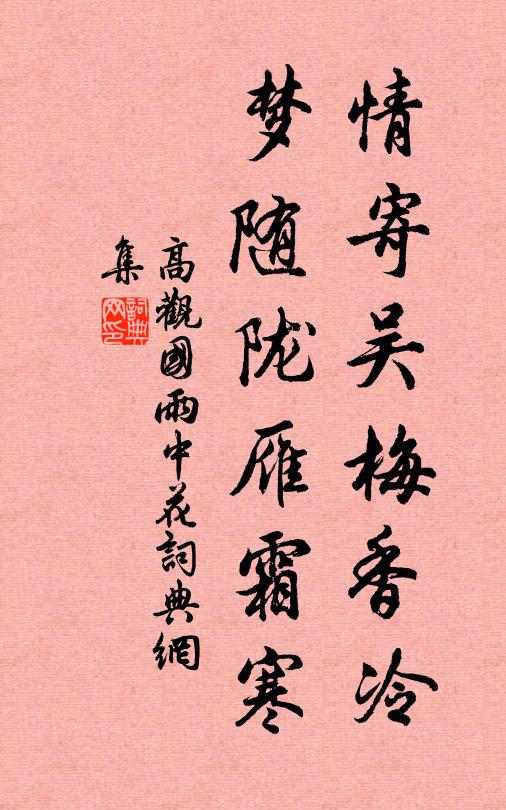 情寄吴梅香冷
梦随陇雁霜寒
高觀國雨中花詞典網
集
詞典
网印